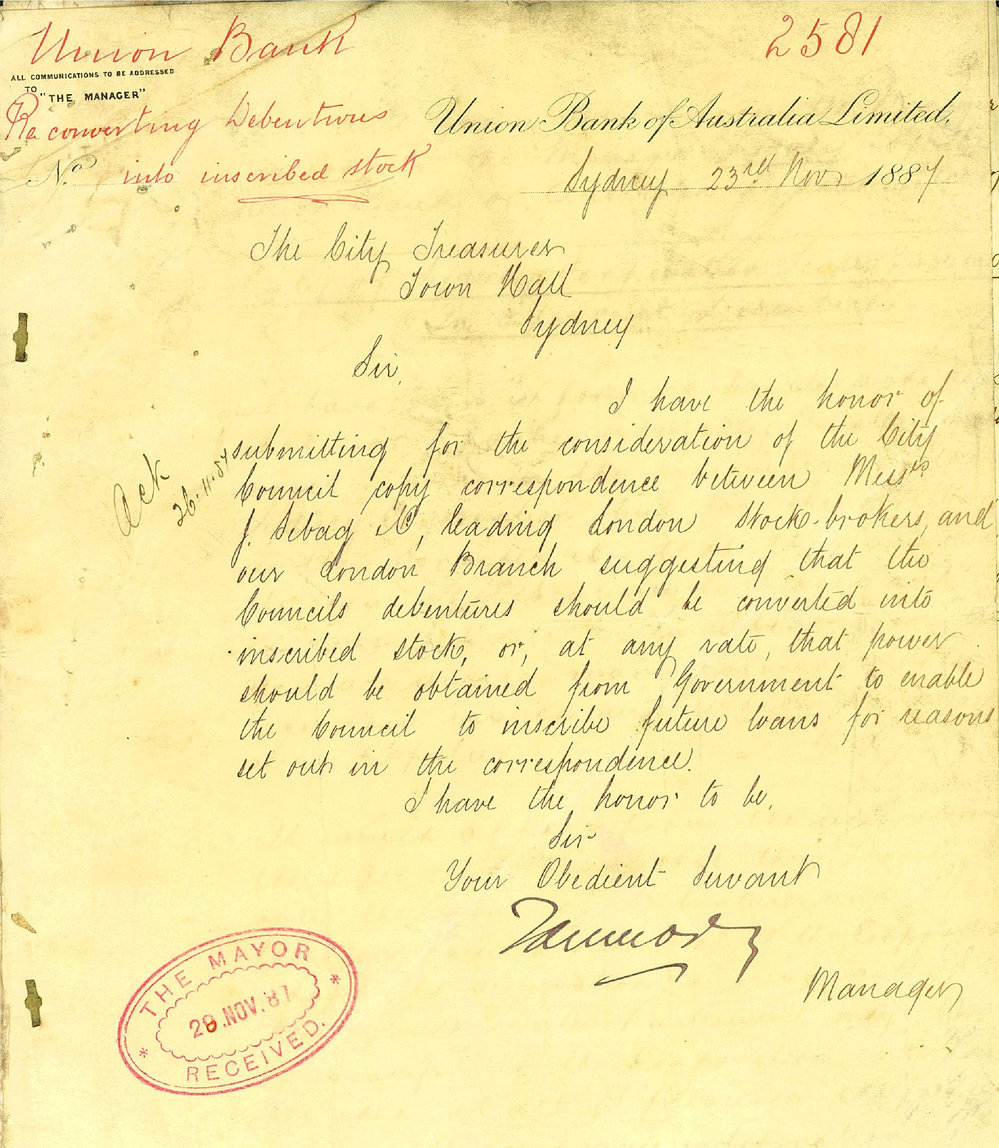 Union Bank
2581
ALL COMMUNICATIONS TO BE ADDRESSED
TO "THE MANAGER"
Re converting Debentures
Union Bank of Australia Limited.
No. into inscribed stock
Sydney 23rd Nov 1887
The City Treasurer
Town Hall
Sydney
Sir,
I have the honor of
submitting for the consideration of the City
Council copy correspondence between Messrs
J. Sebag &C, leading London Stock-brokers, and
our London Branch suggesting that the
Councils debentures should be converted into
inscribed stock, or, at any rate, that power
should be obtained from Government to enable
the Council to inscribe future loans for reasons
set out in the correspondence.
Ack
26.11.87
I have the honor to be,
Sir
Your Obedient Servant
Manager
THE MAYOR
28.NOV.87
RECEIVED.